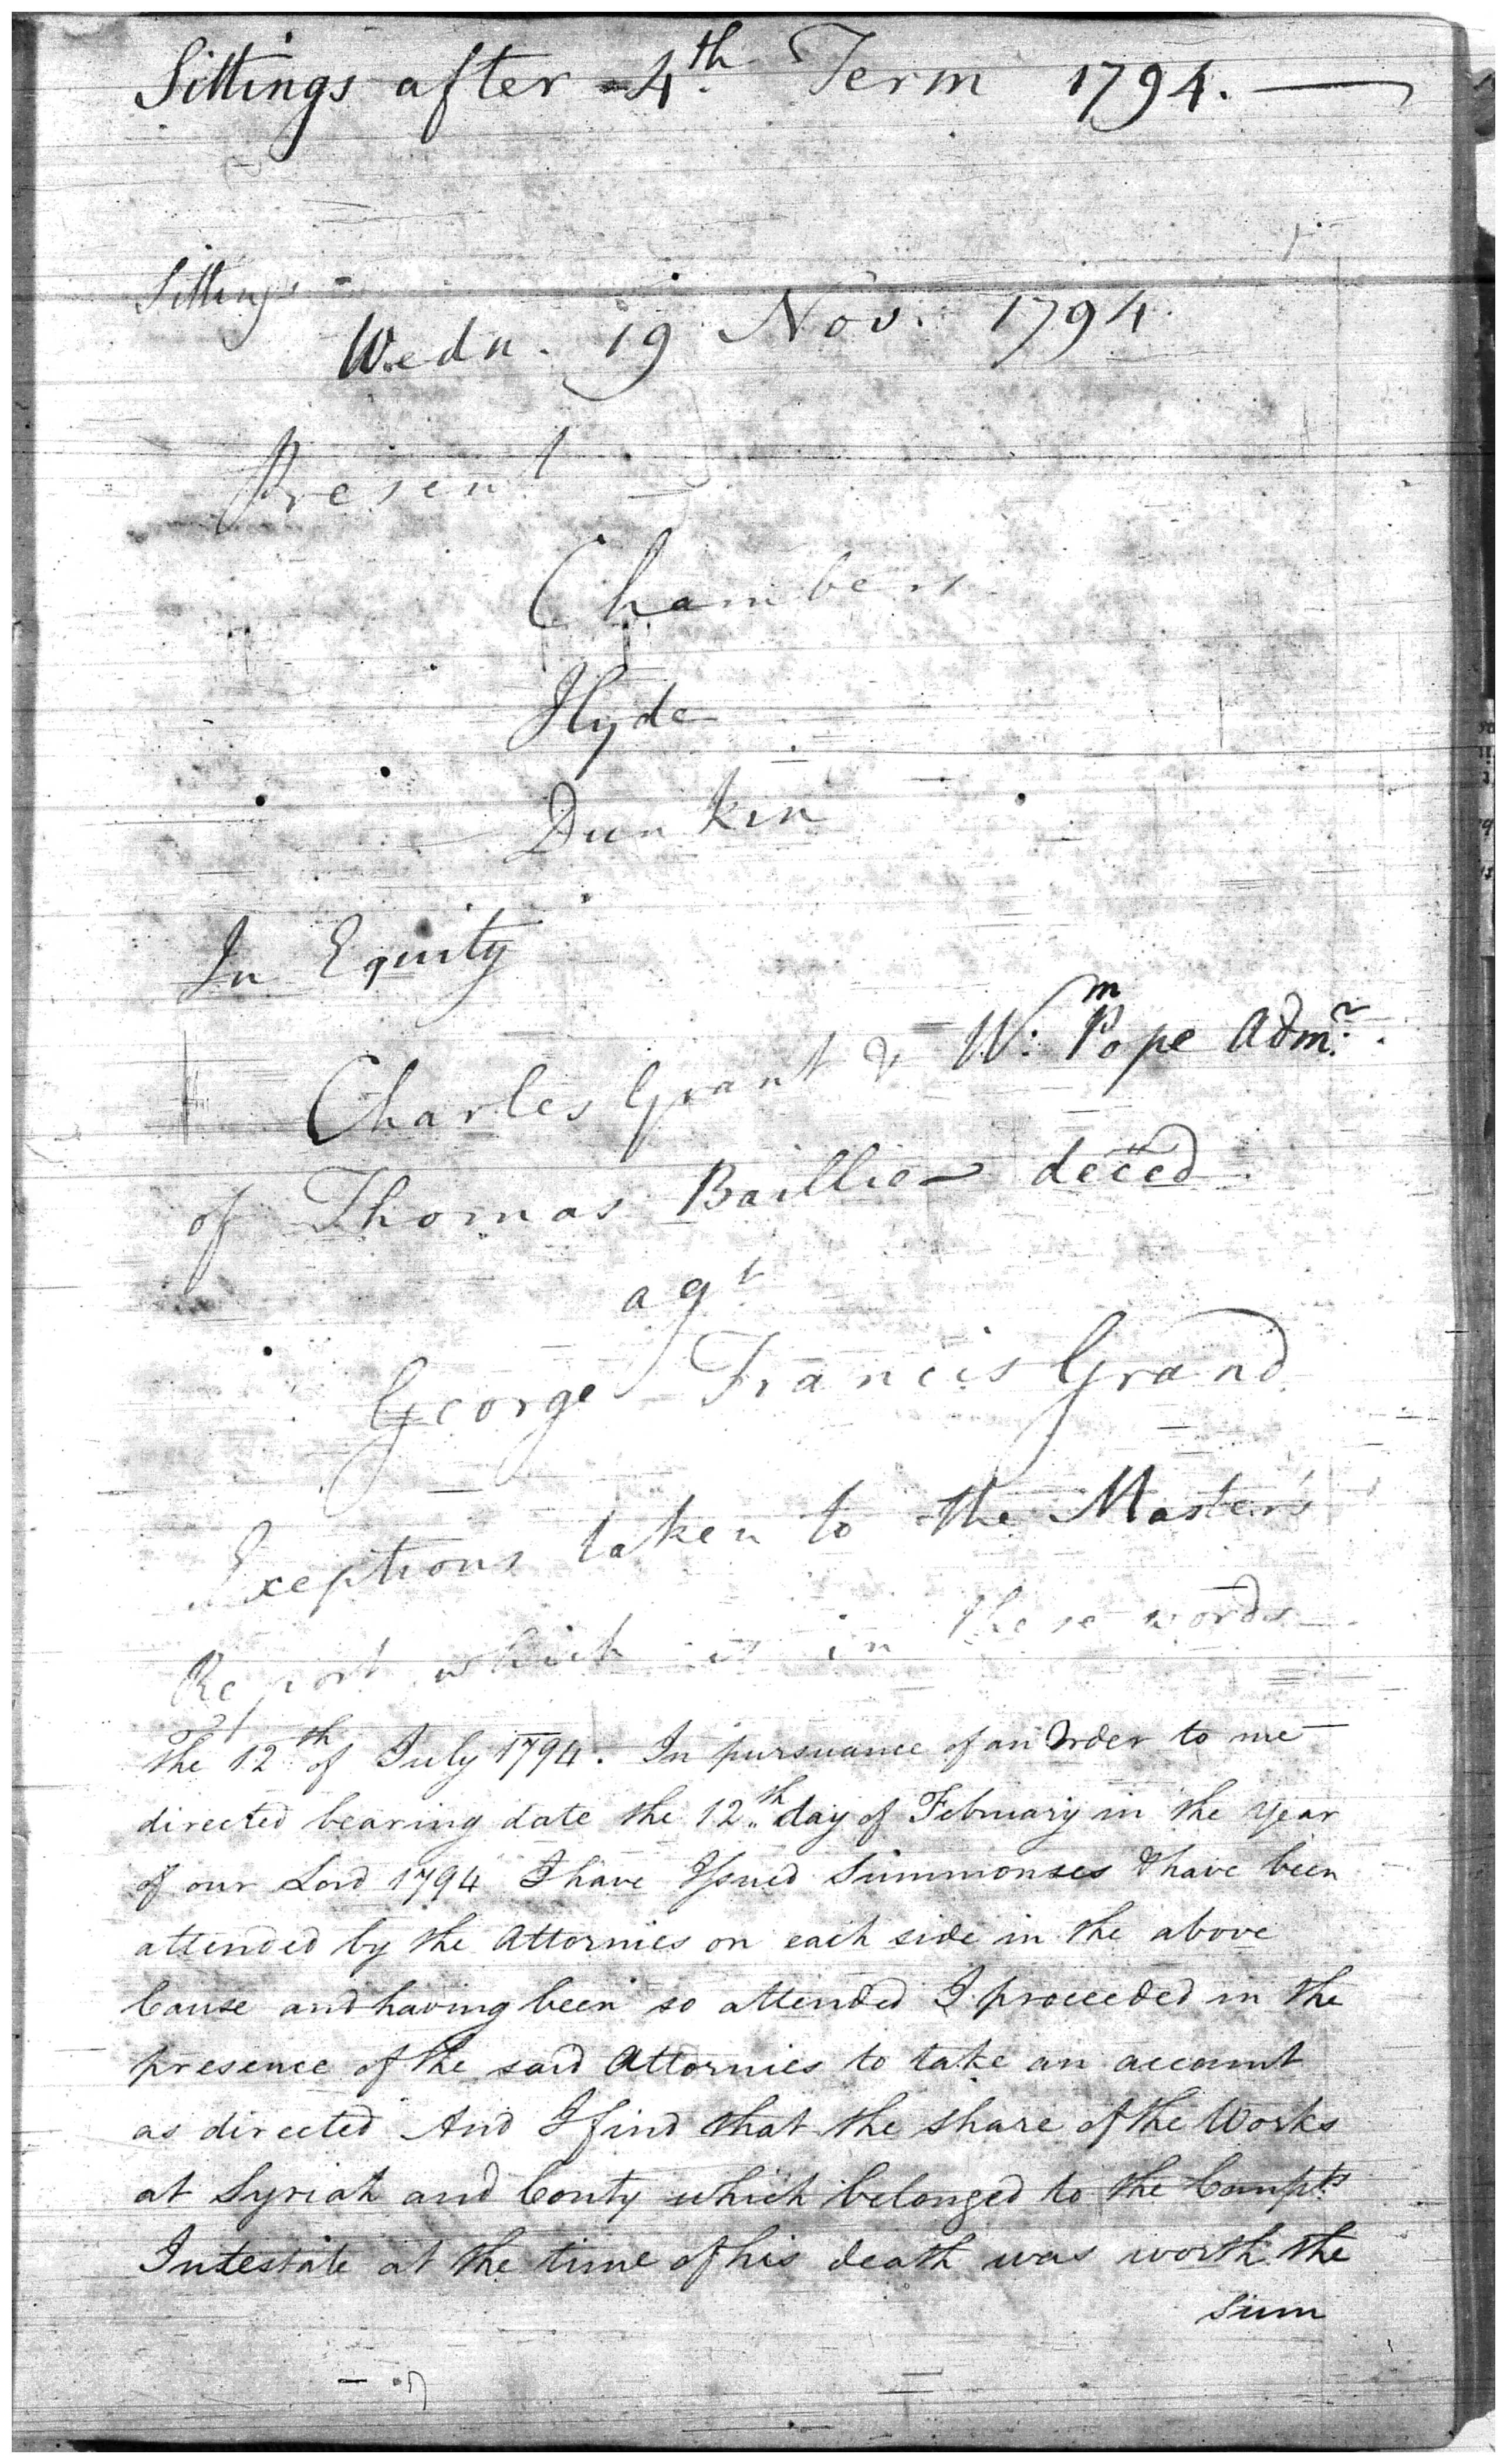 Sittings after 4th Term 1794.
Sittings
Wedn. 19 Nov. 1794.
Present
Chambers
Hyde
Dunkin
In Equity
Charles Grant & Wm. Pope Admr.
of Thomas Baillie deced
agt
George Francis Grand
Exceptions taken to the Master's
Report which is in these words
The 12th of July 1794. In pursuance of an Order to me
directed bearing date the 12th day of February in the Year
of our Lord 1794 I have Issued Summonses & have been
attended by the Attornies on each side in the above
Cause and having been so attended I proceeded in the
presence of the said Attornies to take an account
as directed And I find that the share of the Works
at Syriah and Conty which belonged to the Compts
Intestate at the time of his death was worth the
sum